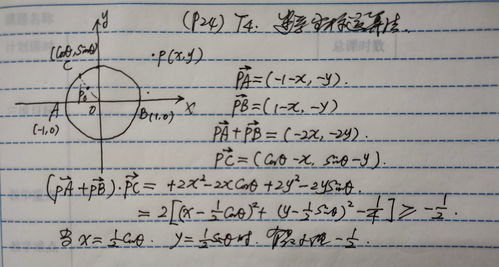 (P24) T4.
y
(cosθ, sinθ)
C
·P(x,y)
P₀
A
O
B(1,0)
x
(-1,0)
总课时数
PA=(-1-x, -y)
PB=(1-x, -y)
PA+PB=(-2x, -2y).
PC=(cosθ-x, sinθ-y).
(PA+PB)·PC= +2x²-2xcosθ+2y²-2ysinθ.
=2[(x-½cosθ)²+(y-½sinθ)²-¼]≥-½.
当x=½cosθ. y=½sinθ时. -½.